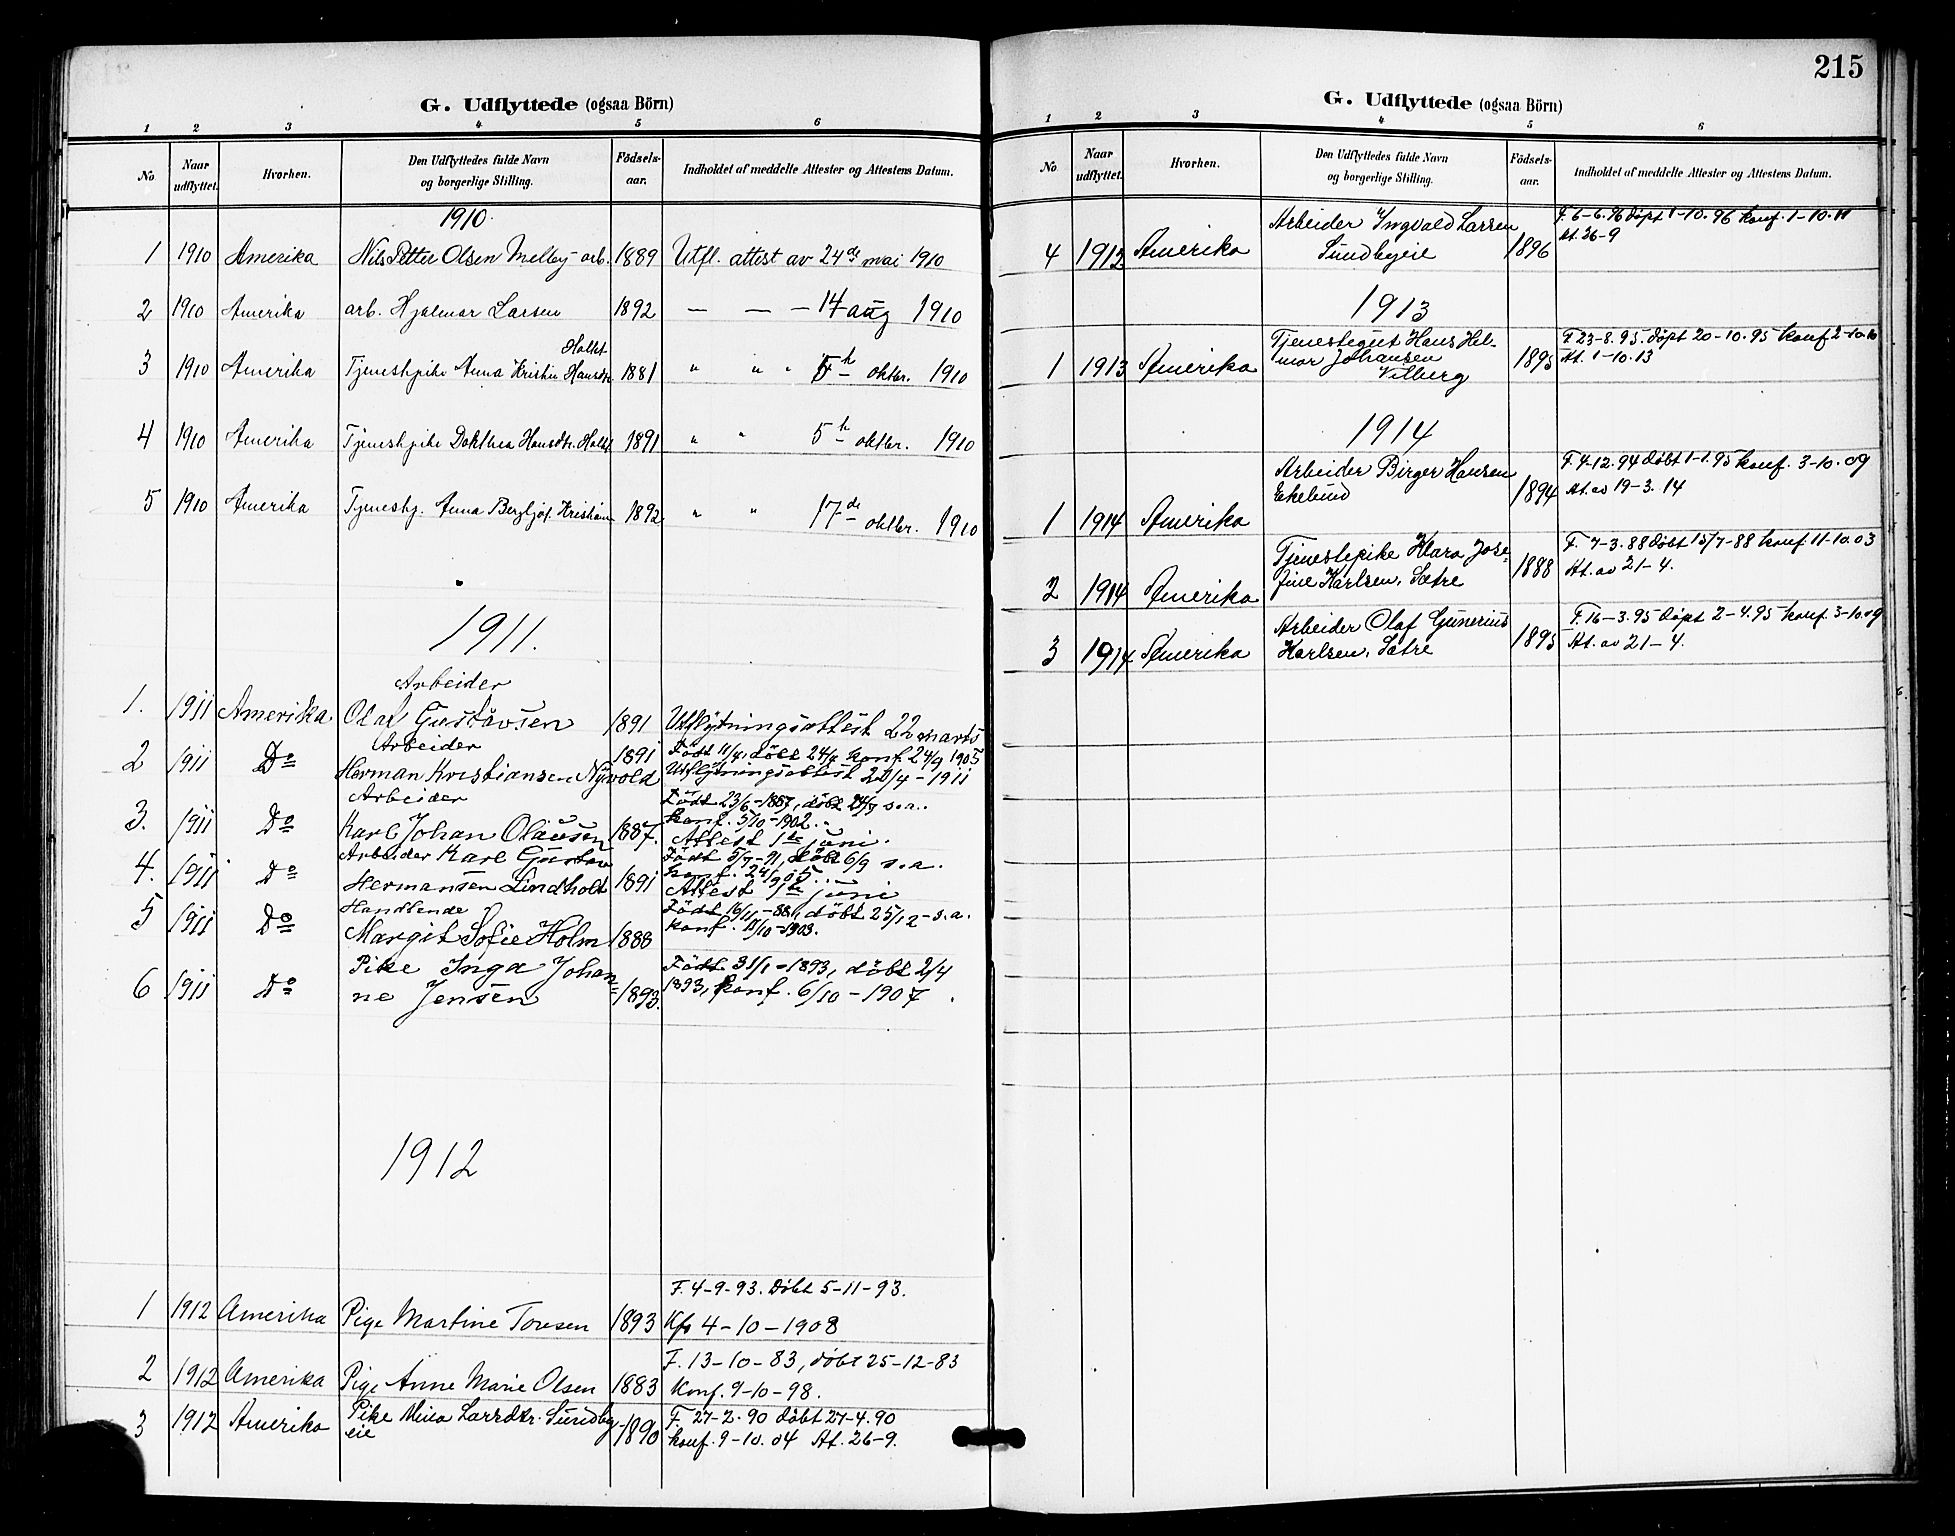 G. Udflyttede (ogsaa Börn)
1 2 3 4 5 6
No Naar udflyttet. Hvorhen. Den Udflyttedes fulde Navn og borgerlige Stilling. Födsels-aar. Indholdet af meddelte Attester og Attestens Datum.
1910.
1 1910 Amerika Nils Petter Olsen Melby arb. 1889 Utfl. attest av 24de mai 1910
2 1910 Amerika arb. Hjalmar Larsen 1892 — — — 14 aug 1910
Holst
3 1910 Amerika Tjenestpike Anna Kristin Hansdtr 1881 " " " 5h oktbr. 1910
4 1910 Amerika Tjenestpike Dorthea Hansdtr. Holst 1891 " " 5h oktbr. 1910
5 1910 Amerika Tjenestp. Anna Bergljot Kristians 1892 " " 17de oktbr. 1910
1911.
Arbeider
1. 1911 Amerika Olaf Gustavsen 1891 Utflytningsattest 22 marts
Arbeider 1891 Född 11/4, döbt 24/6 konf. 24/9 1905
2 1911 Do Herman Kristiansen Nyvold Utflytningsattest 22/4 - 1911
Arbeider Född 23/6-1887, döbt 24/7 s.a..
3. 1911 Do Karl Johan Olausen 1887. konf. 5/10-1902.
Attest 1ste juni.
Arbeider Karl Gustav Född 5/7-91, döbt 6/9 s.a.
4. 1911 Do Hermansen Lindholt 1891 konf. 24/9 05.
Attest 7de juni
Handlende Född 16/11-88, döbt 25/12-s.a.
5 1911 Do Margit Sofie Holm 1888 konf. 11/10-1903.
Pike Inga Johan= Född 31/1-1893, döbt 2/4
6 1911 Do ne Jensen 1893. 1893, konf. 6/10-1907
1912
F. 4-9-93. Döbt 5-11-93.
1 1912 Amerika Pige Martine Toresen 1893 Kfr 4-10-1908
F. 13-10-83, döbt 25-12-83
2 1912 Amerika Pige Anne Marie Olsen 1883 Konf. 9-10-98.
3 1912 Amerika Pike Mina Larsdtr. Sundby- 1890 F. 27-2.90 döbt 27-4.90
eie konf. 9-10.04 At. 26-9.
215
G. Udflyttede (ogsaa Börn)
1 2 3 4 5 6
No Naar udflyttet. Hvorhen. Den Udflyttedes fulde Navn og borgerlige Stilling. Födsels-aar. Indholdet af meddelte Attester og Attestens Datum.
Arbeider Ingvald Larsen F. 6-6.96 döpt 1-10.96 konf. 1-10.11
4 1912 Amerika Sundbyeie 1896 At. 26-9
1913
Tjenestegut Hans Hel- F. 23-8.95. döpt 20-10.95 konf 2-10.10
1 1913 Amerika mar Johansen 1895 At. 1-10.13
Vilberg
1914
Arbeider Birger Hansen F. 4-12.94 döbt 1-1.95 konf. 3-10.09
1 1914 Amerika Ekelund 1894 At. av 19-3.14
Tjenestepike Klara Jose- F. 7-3.88 döbt 15/7-88 konf 11-10.03
2 1914 Amerika fine Karlsen, Sætre 1888 At. av 21-4.
Arbeider Olaf Gunerius F. 16-3.95 döpt 2-4.95 konf. 3-10.09
3 1914 Amerika Karlsen, Sætre 1895 At. av 21-4.